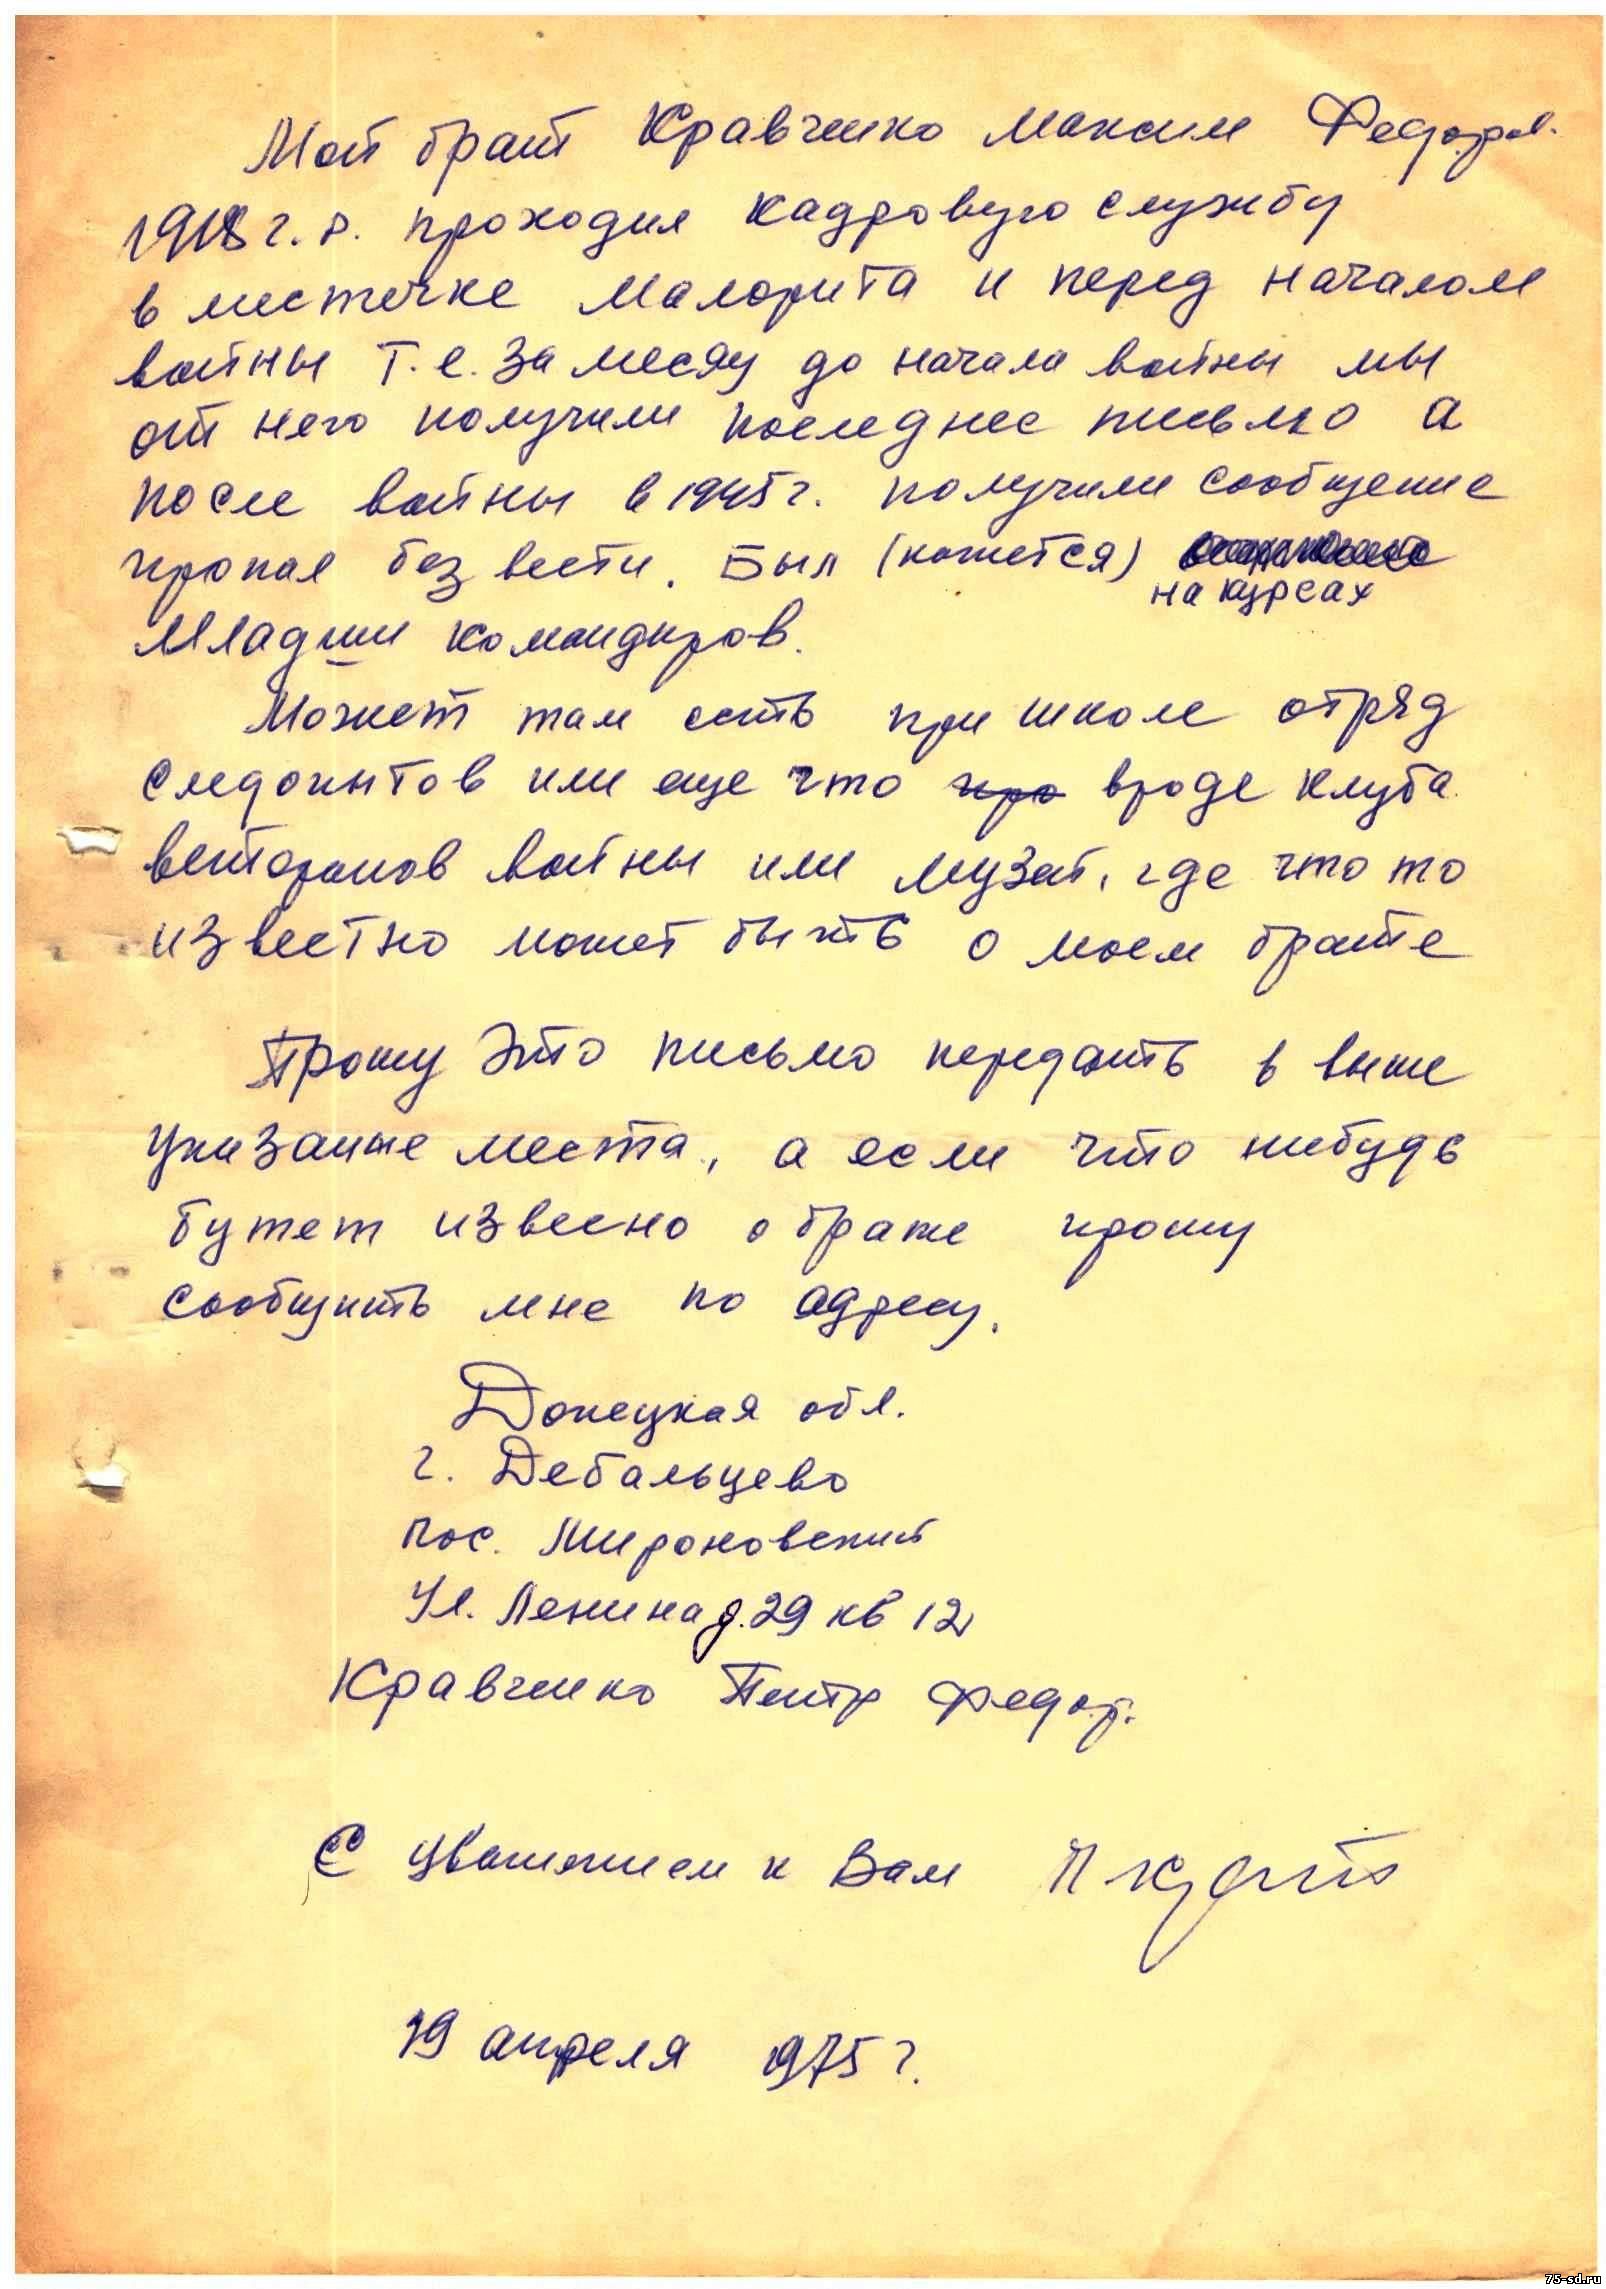 Мой брат Кравченко Максим Федоров.
1918 г. р. проходил кадровую службу
в местечке Малорита и перед началом
войны т.е. за месяц до начала войны мы
от него получили последнее письмо а
после войны в 1945 г. получили сообщение
пропал без вести. Был (кажется)
на курсах
младши командиров.
Может там есть при школе отряд
следопытов или еще что про вроде клуба
веторанов войны или музей, где что то
известно может быть о моем брате
Прошу это письмо передать в выше
указаные места, а если что нибудь
бутет извесно о брате прошу
сообщить мне по адресу.
Донецкая обл.
г. Дебальцево
пос. Мироновский
Ул. Ленина д. 29 кв 12
Кравченко Петр Федор.
С уважением к Вам
19 апреля 1975 г.
75-sd.ru